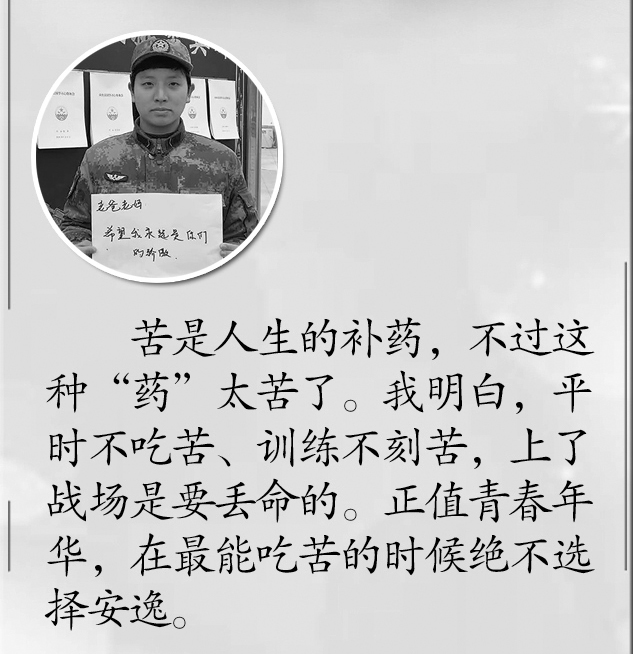 老爸老妈
希望我永远是你们
的骄傲.
苦是人生的补药，不过这
种“药”太苦了。我明白，平
时不吃苦、训练不刻苦，上了
战场是要丢命的。正值青春年
华，在最能吃苦的时候绝不选
择安逸。